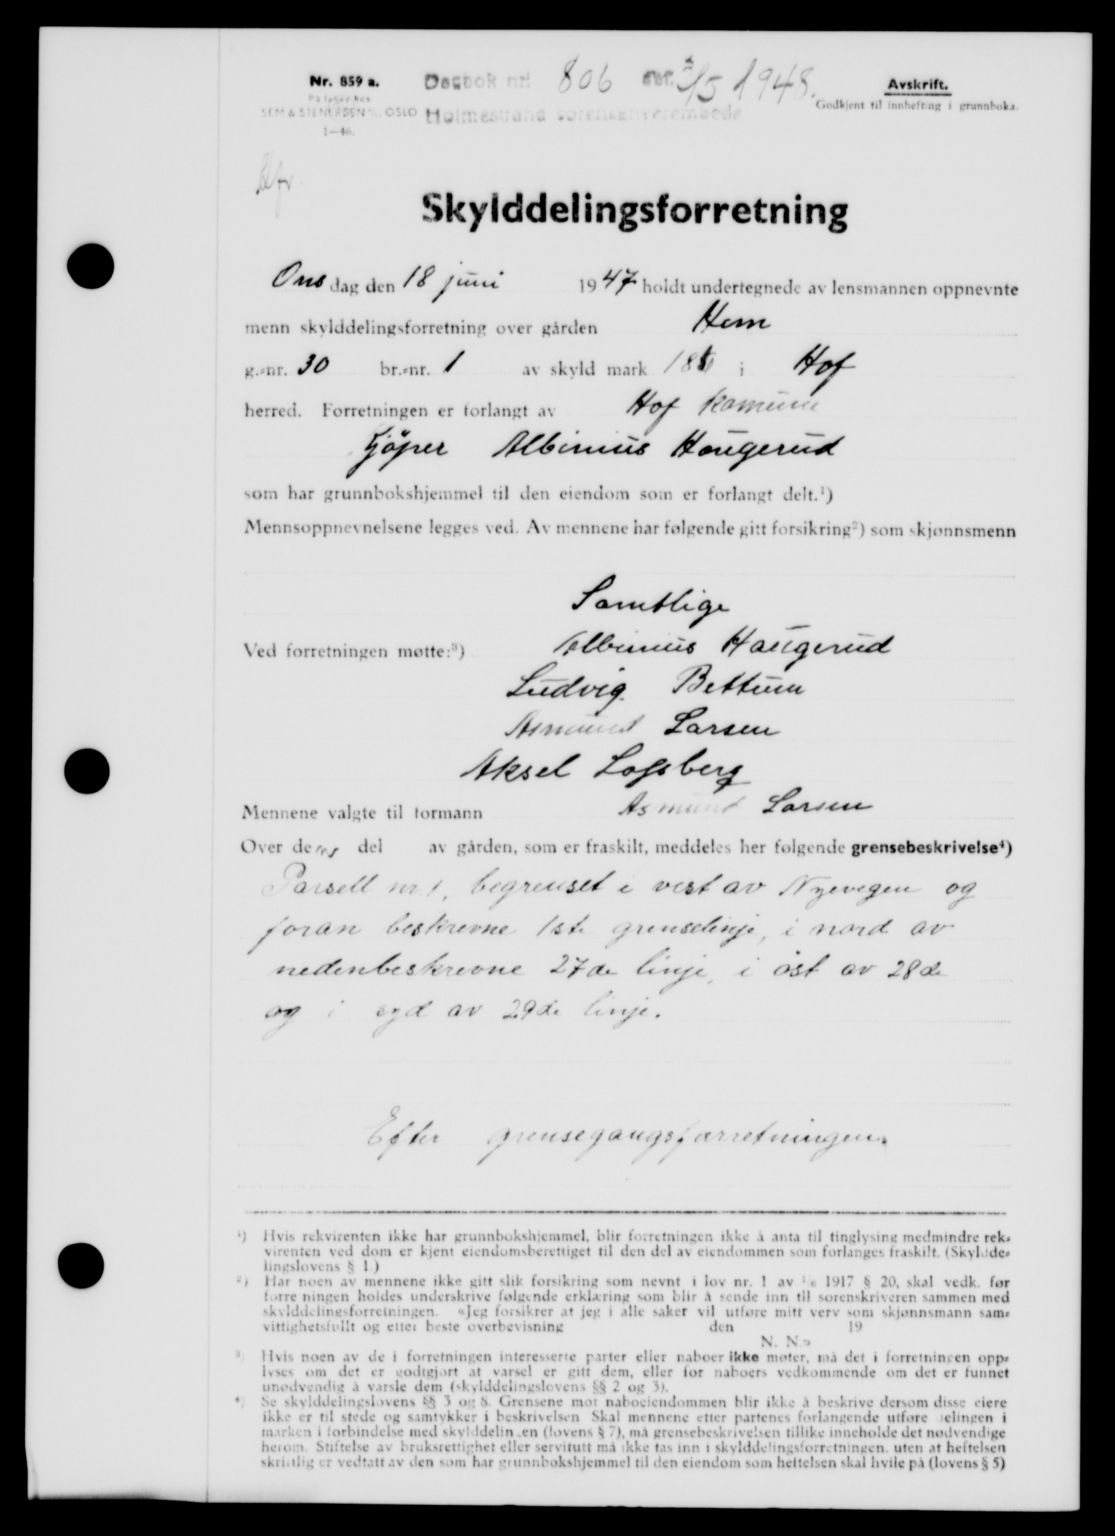 Nr. 859 a.
Dagbok nr. 806 3/5 1948.
Avskrift.
Godkjent til innhefting i grunnboka.
SEM & STENERSEN A/S, OSLO
Holmestrand sorenskriverembede
1—46.
Skylddelingsforretning
Onsdag den 18 juni 1947 holdt undertegnede av lensmannen oppnevnte
menn skylddelingsforretning over gården Hem
g.-nr. 30 br.-nr. 1 av skyld mark i Hof
herred. Forretningen er forlangt av Hof komune
kjöper Albinius Haugerud
som har grunnbokshjemmel til den eiendom som er forlangt delt.¹)
Mennsoppnevnelsene legges ved. Av mennene har følgende gitt forsikring²) som skjønnsmenn
Samtlige
Ved forretningen møtte:³) Albinius Haugerud
Ludvig Bettum
Asmund Larsen
Aksel Lofsberg
Mennene valgte til formann Asmund Larsen
Over deres del av gården, som er fraskilt, meddeles her følgende grensebeskrivelse⁴)
Parsell nr 1, begrenset i vest av Nyevegen og
foran beskrevne 1ste grenselinje, i nord av
nedenbeskrevne 27de linje, i öst av 28de
og i syd av 29de linje.
Efter grensegangsforretningen.
¹) Hvis rekvirenten ikke har grunnbokshjemmel, blir forretningen ikke å anta til tinglysing medmindre rek-
virenten ved dom er kjent eiendomsberettiget til den del av eiendommen som forlanges fraskilt. (Skyldde-
lingslovens § 1.)
²) Har noen av mennene ikke gitt slik forsikring som nevnt i lov nr. 1 av 1/6 1917 § 20, skal vedk. før
forretningen holdes underskrive følgende erklæring som blir å sende inn til sorenskriveren sammen med
skylddelingsforretningen. «Jeg forsikrer at jeg i alle saker vil utføre mitt verv som skjønnsmann sam-
vittighetsfullt og etter beste overbevisning den 19
N. N.»
³) Hvis noen av de i forretningen interesserte parter eller naboer ikke møter, må det i forretningen opp-
lyses om det er godtgjort at varsel er gitt dem, eller for naboers vedkommende om det er funnet
unødvendig å varsle dem (skylddelingslovens §§ 2 og 3).
⁴) Se skylddelingslovens §§ 3 og 8. Grensene mot naboeiendommen blir ikke å beskrive dersom disse eiere
ikke er til stede og samtykker i beskrivelsen Skal mennene etter partenes forlangende utføre delingen i
marken i forbindelse med skylddelingen (lovens § 7), må grensebeskrivelsen tillike inneholde det nødvendige
herom. Stiftelse av bruksrettighet eller servitutt må ikke tas inn i skylddelingsforretningen, uten at heftelsen
skriftlig er vedtatt av den som har grunnbokshjemmel til den eiendom som heftelsen skal hvile på (lovens § 5)